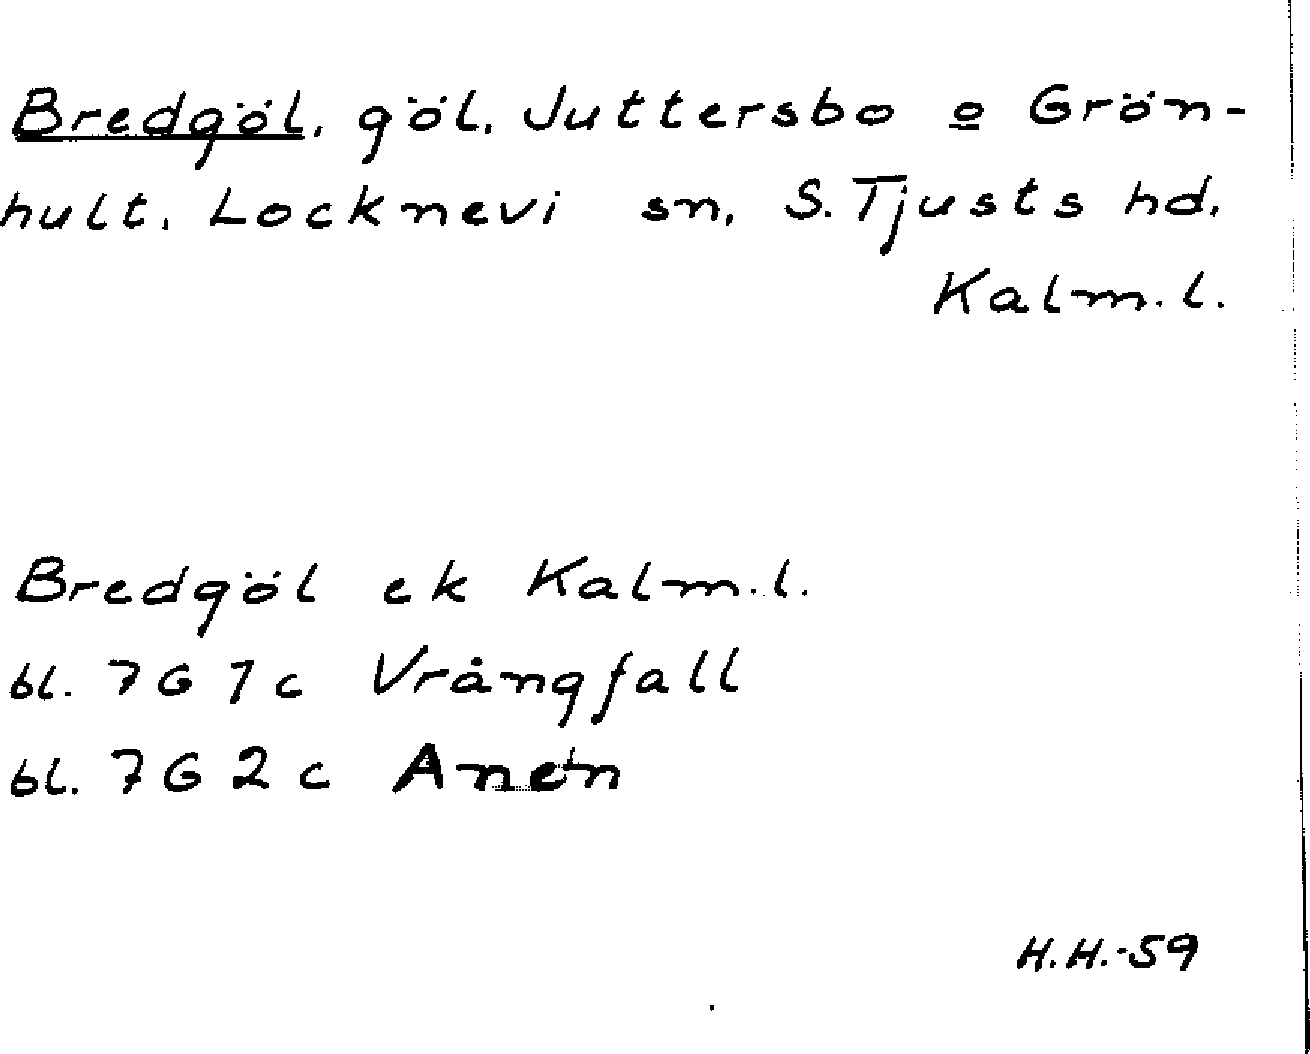 Bredgöl, göl, Juttersbo o Grön-
hult, Locknevi sn, S. Tjusts hd,
Kalm. l.
Bredgöl ek Kalm. l.
bl. 7G 1c Vrångfall
bl. 7G 2c Anen
H.H.-59